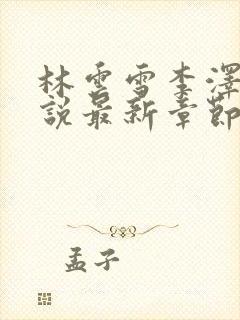 林雲雪李澤
說最新章節
孟子